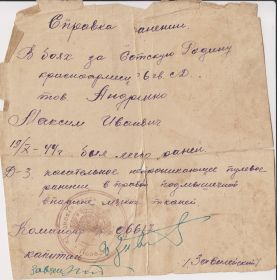 Справка ранении
В боях за Советскую Родину
красноармеец 6 гв. с.д.
тов. Андренко
Максим Иванович
19/X-44 г. был легко ранен
Д-з касательное непроникающее пулевое
ранение в правой подмышечной
впадине мягких тканей
Командир
капитан